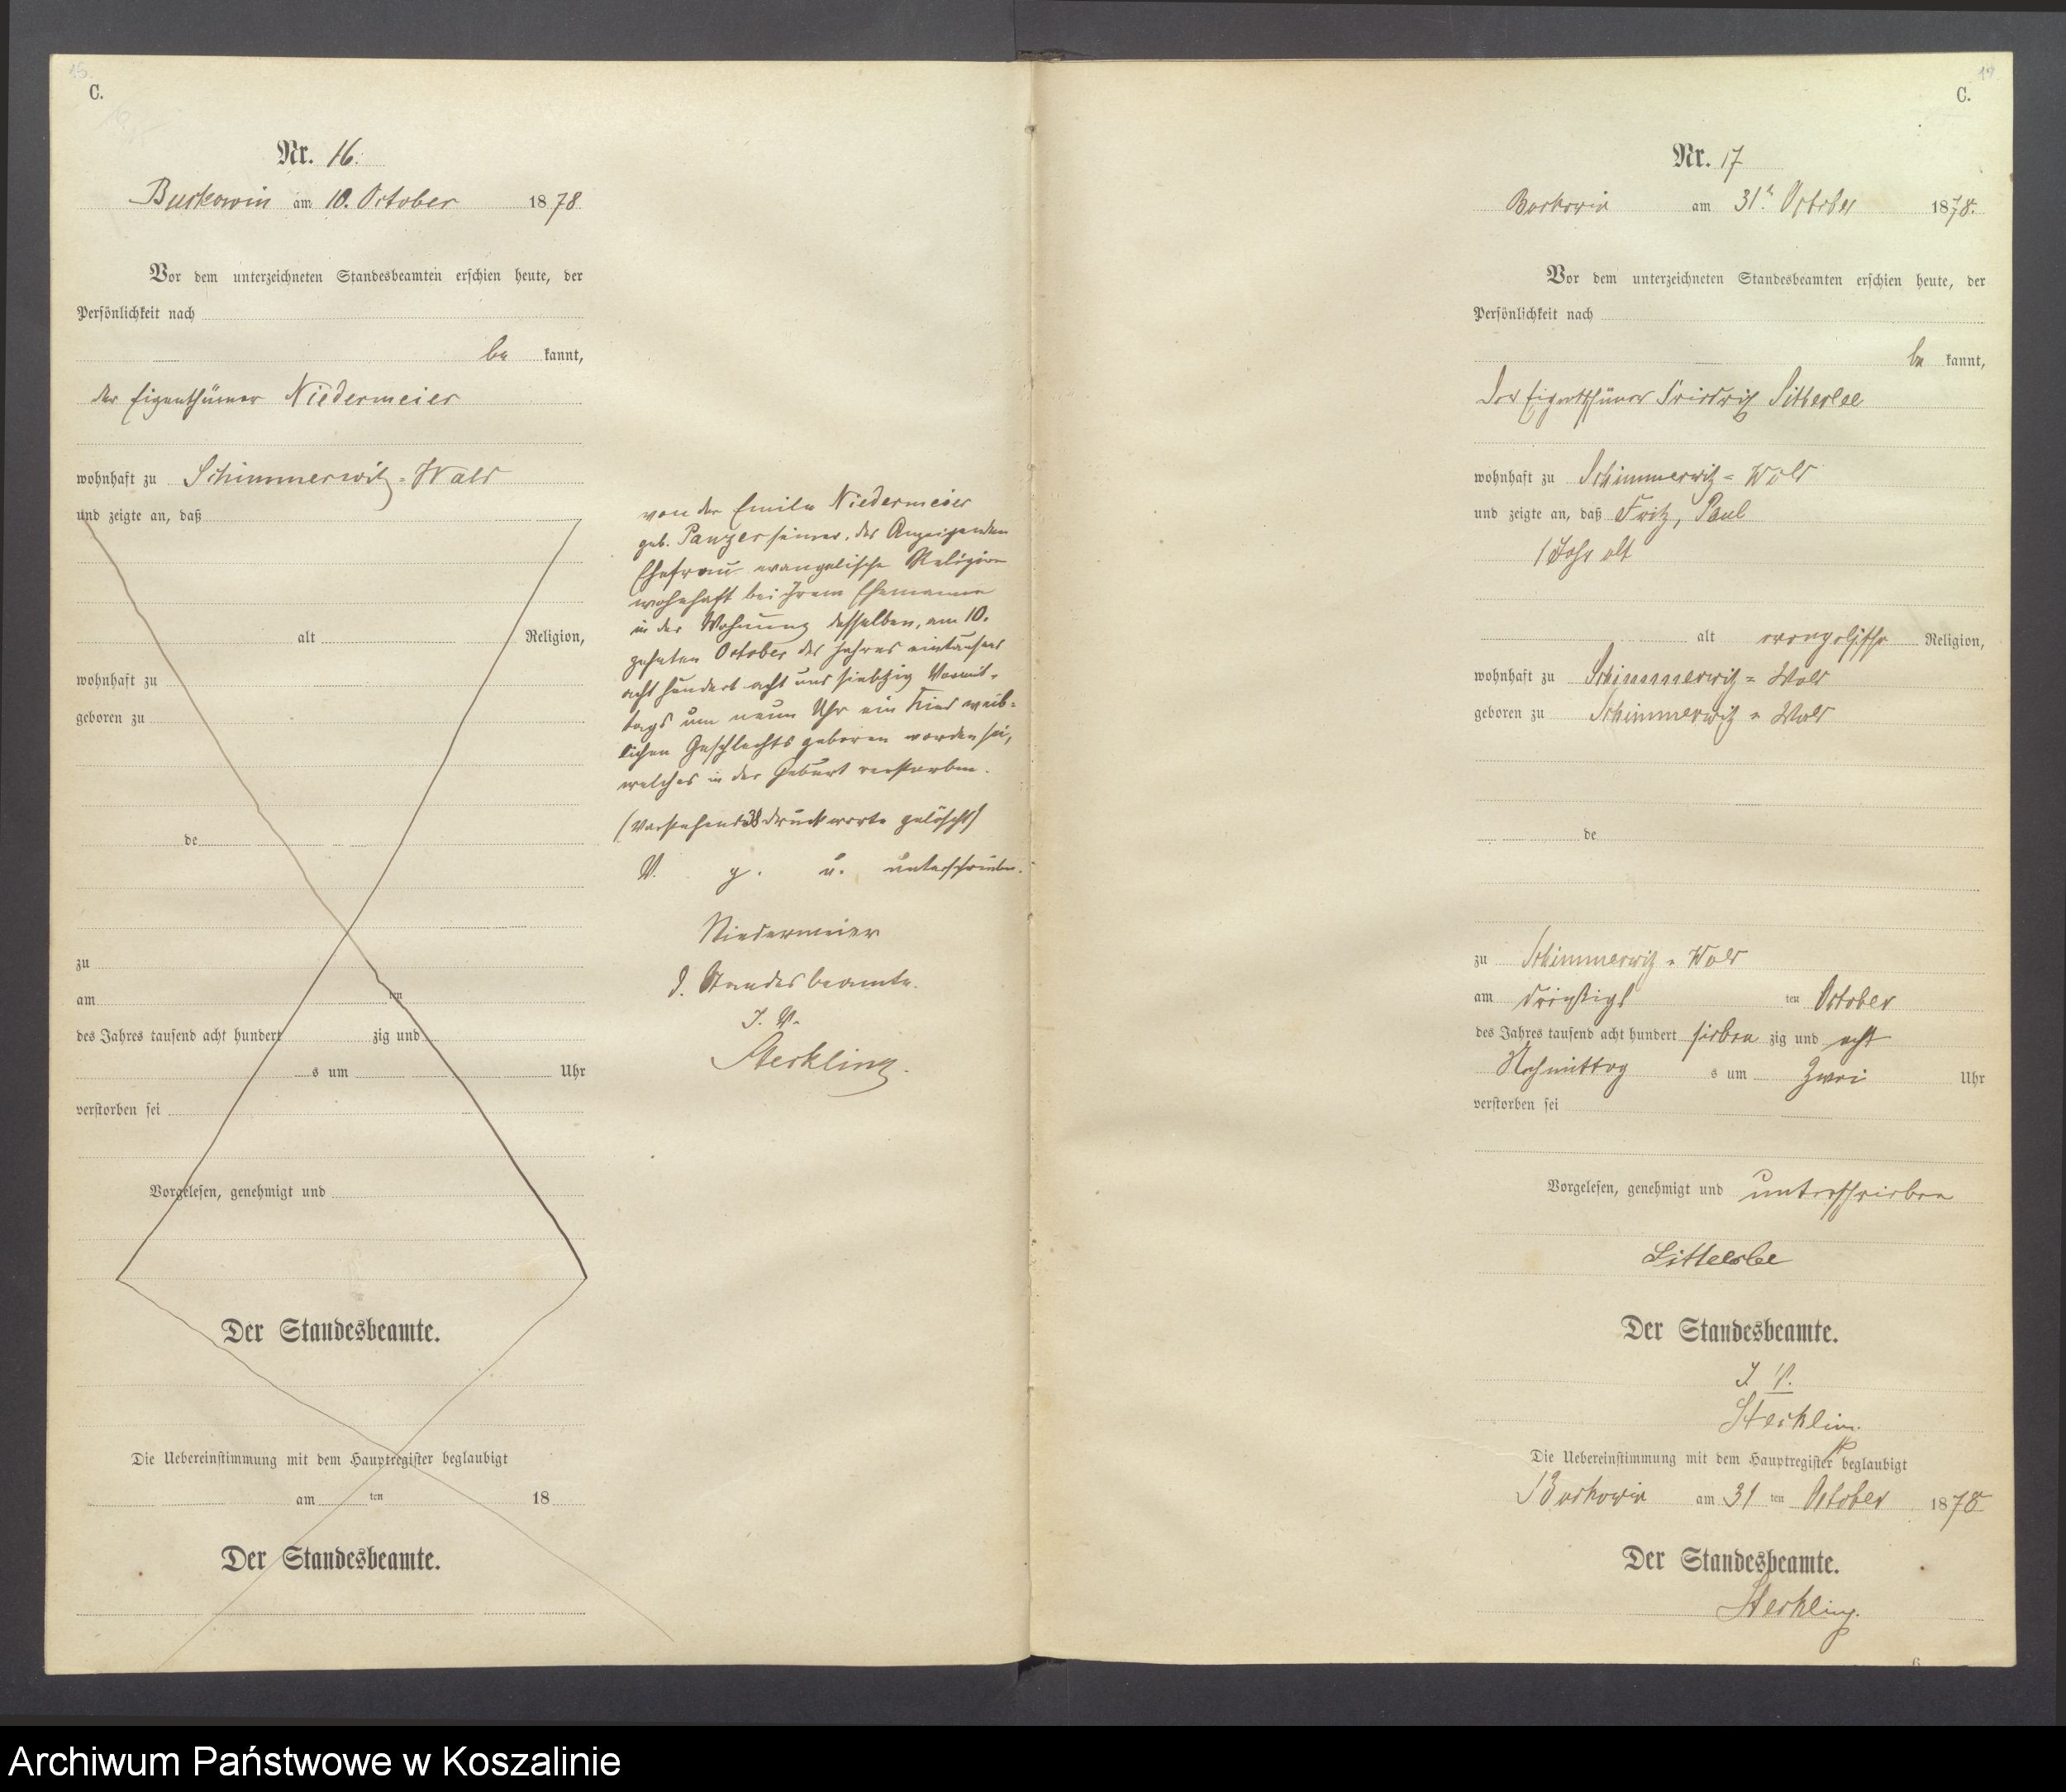 C.
Nr. 16.
Burkowin am 10. October 1878
Vor dem unterzeichneten Standesbeamten erschien heute, der
Persönlichkeit nach
be kannt,
der Eigenthümer Niedermeier
wohnhaft zu Schimmerwitz-Wald
und zeigte an, daß
alt Religion,
wohnhaft zu
geboren zu
de
zu
am ten
des Jahres tausend acht hundert zig und
s um Uhr
verstorben sei
Vorgelesen, genehmigt und
Der Standesbeamte.
Die Uebereinstimmung mit dem Hauptregister beglaubigt
am ten 18
Der Standesbeamte.
von der Emilie Niedermeier
geb. Panzer seiner, des Anzeigenden
Ehefrau evangelische Religion
wohnhaft bei ihrem Ehemanne
in der Wohnung desselben, am 10.
zehnten October des Jahres eintausend
acht hundert acht und siebzig Vormit-
tags um neun Uhr ein Kind weib-
lichen Geschlechts geboren worden sei,
welches in der Geburt verstorben.
(Vorstehende 38 Druckworte gelöscht)
V. g. u. unterschrieben.
Niedermeier
D. Standesbeamte.
J. V.
Sterkling.
C.
Nr. 17
Burkowin am 31t October 1878.
Vor dem unterzeichneten Standesbeamten erschien heute, der
Persönlichkeit nach
be kannt,
Der Eigenthümer Friedrich Litterlee
wohnhaft zu Schimmerwitz-Wald
und zeigte an, daß Fritz, Paul
1 Jahr alt
alt evangelische Religion,
wohnhaft zu Schimmerwitz-Wald
geboren zu Schimmerwitz-Wald
de
zu Schimmerwitz-Wald
am dreißigst ten October
des Jahres tausend acht hundert sieben zig und acht
Nachmittag s um zwei Uhr
verstorben sei
Vorgelesen, genehmigt und unterschrieben
Der Standesbeamte.
J. V.
Sterkling
Die Uebereinstimmung mit dem Hauptregister beglaubigt
Burkowin am 31 ten October 1878
Der Standesbeamte.
Sterkling.
Archiwum Państwowe w Koszalinie